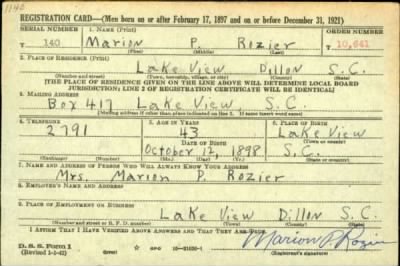 1140
REGISTRATION CARD—(Men born on or after February 17, 1897 and on or before December 31, 1921)
SERIAL NUMBER 1. NAME (Print) ORDER NUMBER
T 140 Marion P. Rozier 10,641
(First) (Middle) (Last)
2. PLACE OF RESIDENCE (Print)
Lake View Dillon S.C.
(Number and street) (Town, township, village, or city) (County) (State)
[THE PLACE OF RESIDENCE GIVEN ON THE LINE ABOVE WILL DETERMINE LOCAL BOARD
JURISDICTION; LINE 2 OF REGISTRATION CERTIFICATE WILL BE IDENTICAL]
3. MAILING ADDRESS
Box 417 Lake View, S.C.
[Mailing address if other than place indicated on line 2. If same insert word same]
4. TELEPHONE 5. AGE IN YEARS 6. PLACE OF BIRTH
2791 43 Lake View
DATE OF BIRTH (Town or county)
October 12, 1898 S.C.
(Exchange) (Number) (Mo.) (Day) (Yr.) (State or country)
7. NAME AND ADDRESS OF PERSON WHO WILL ALWAYS KNOW YOUR ADDRESS
Mrs. Marion P. Rozier
8. EMPLOYER'S NAME AND ADDRESS
9. PLACE OF EMPLOYMENT OR BUSINESS
Lake View Dillon S.C.
(Number and street or R. F. D. number) (Town) (County) (State)
I AFFIRM THAT I HAVE VERIFIED ABOVE ANSWERS AND THAT THEY ARE TRUE.
D. S. S. Form 1
(Revised 1-1-42) Marion P Rozier
(Registrant's signature)